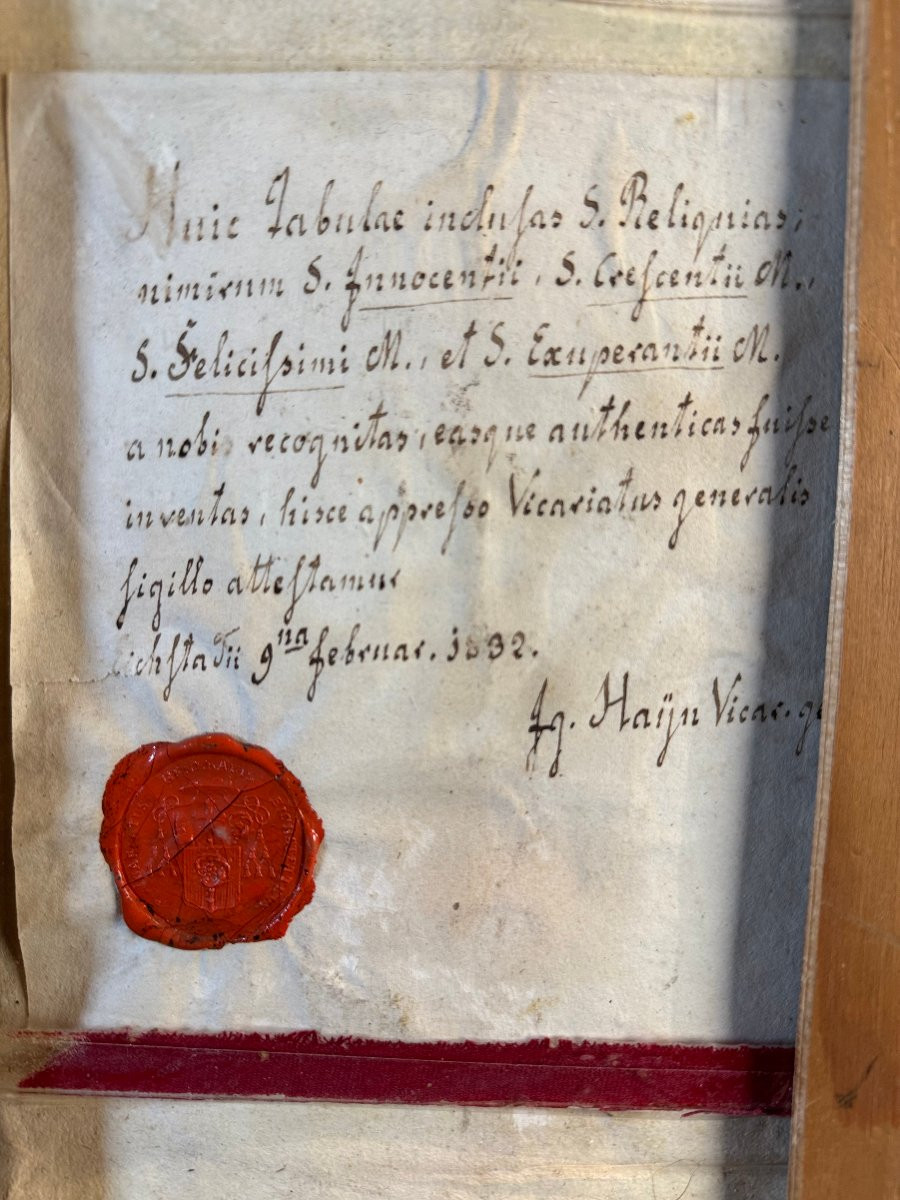 Huic Tabulae inclusas S. Reliquias,
nimirum S. Innocentii, S. Crescentii M.,
S. Felicissimi M., et S. Exuperantii M.
a nobis recognitas, easque authenticas fuisse
inventas, hisce appresso Vicariatus generalis
sigillo attestamur
Eichstadii 9na februar. 1832.
Jg. Haÿn Vicar. ge